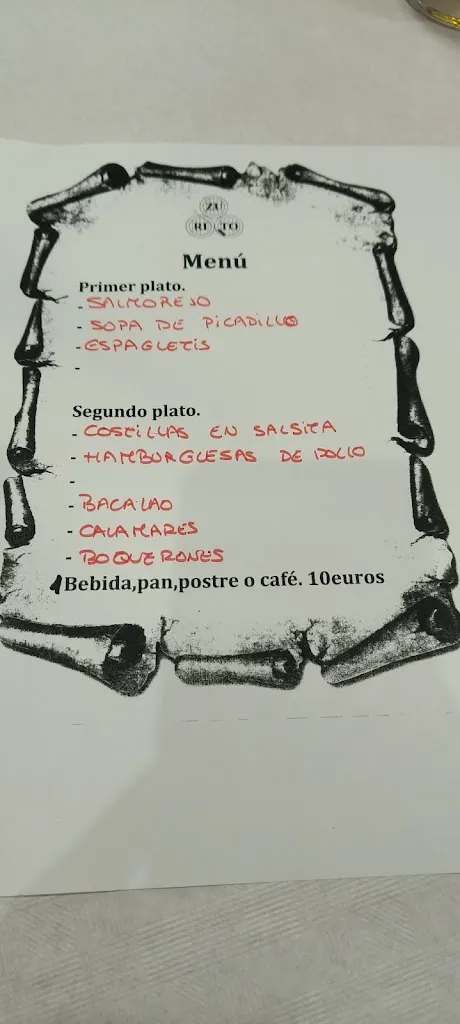 ZU
RI TO
Menú
Primer plato.
- SALMOREJO
- SOPA DE PICADILLO
- ESPAGUETIS
-
Segundo plato.
- COSTILLAS EN SALSITA
- HAMBURGUESAS DE POLLO
-
- BACALAO
- CALAMARES
- BOQUERONES
1Bebida,pan,postre o café. 10euros